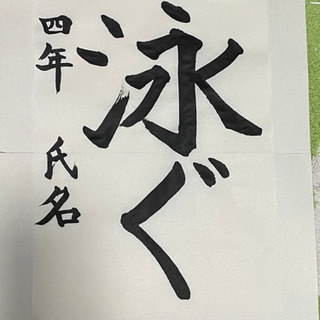 泳ぐ
四年 氏名